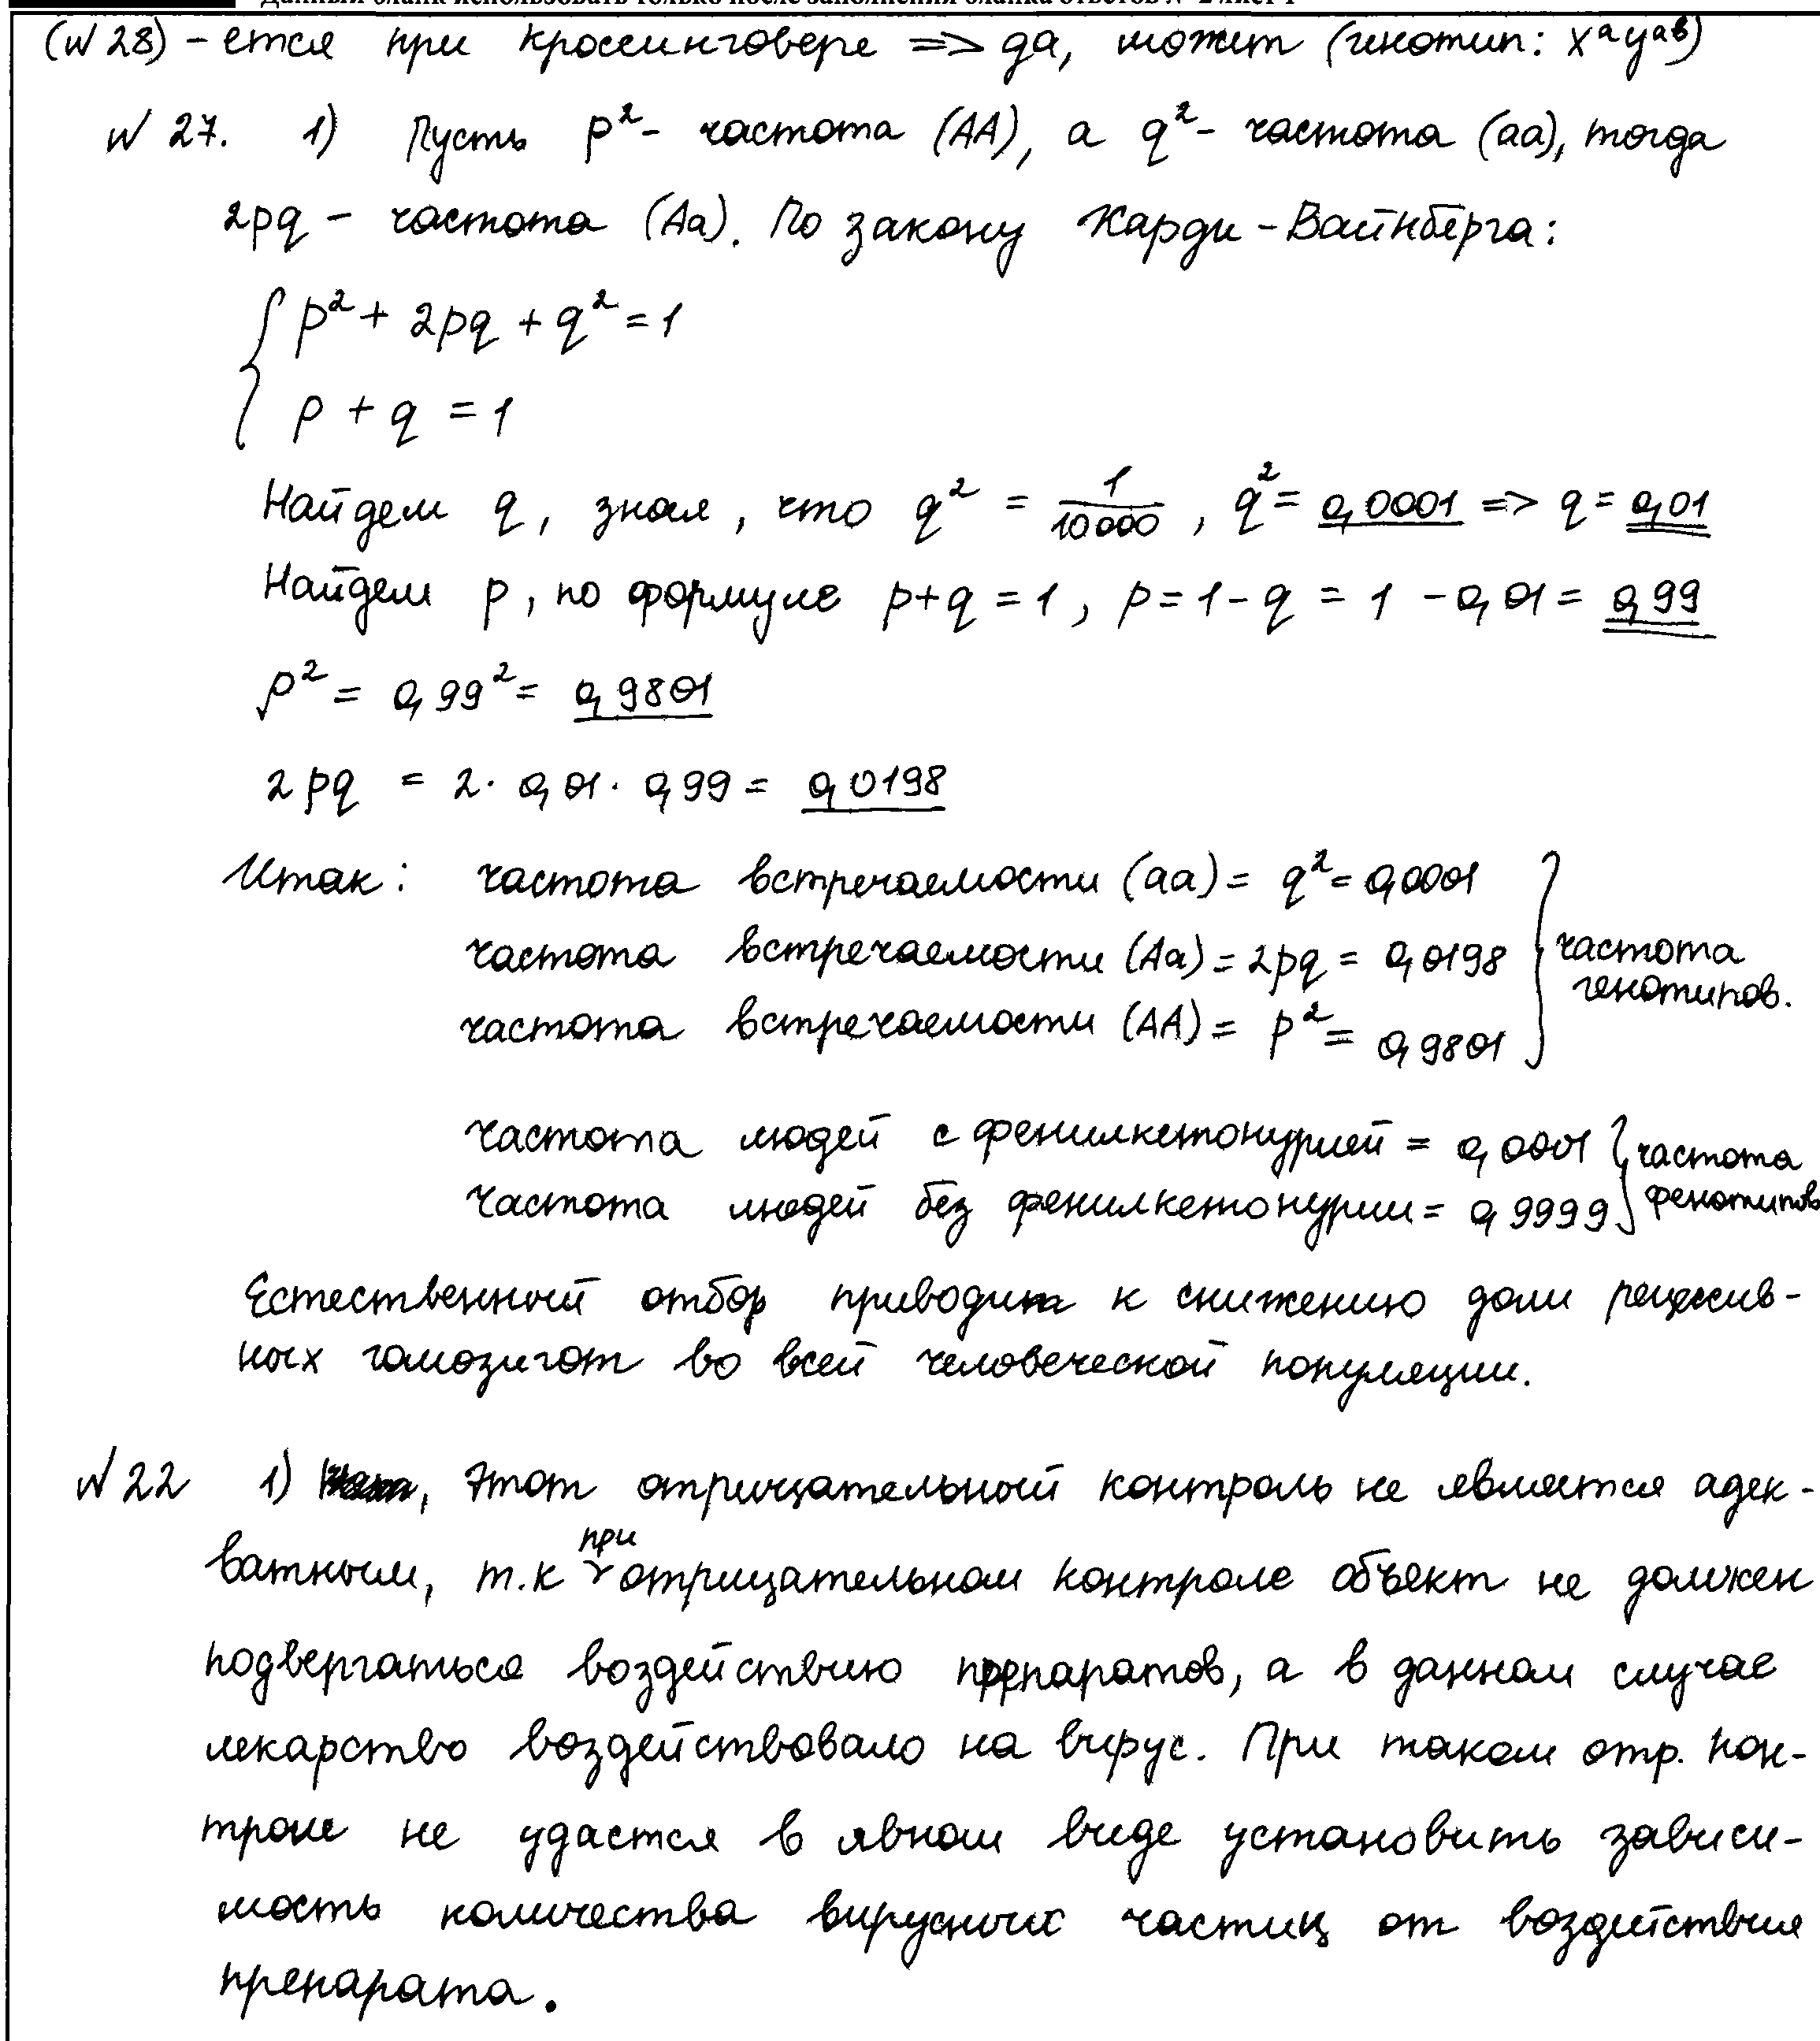 Данный бланк использовать только после заполнения бланка ответов № 2 лист 1
(N28) - ется при кроссинговере => да, может (генотип: XᵃYᵃᵇ)
N 27. 1) Пусть p² - частота (AA), а q² - частота (aa), тогда
2pq - частота (Aa). По закону Харди - Вайнберга:
p² + 2pq + q² = 1
p + q = 1
Найдем q, зная, что q² = 1/10000, q² = 0,0001 => q = 0,01
Найдем p, по формуле p+q = 1, p = 1 - q = 1 - 0,01 = 0,99
p² = 0,99² = 0,9801
2pq = 2 · 0,01 · 0,99 = 0,0198
Итак: частота встречаемости (aa) = q² = 0,0001
частота встречаемости (Aa) = 2pq = 0,0198
частота встречаемости (AA) = p² = 0,9801
частота генотипов.
частота людей с фенилкетонурией = 0,0001
частота людей без фенилкетонурии = 0,9999
частота фенотипов
Естественный отбор приводит к снижению доли рецессив-
ных гомозигот во всей человеческой популяции.
N 22 1) Этот отрицательный контроль не является адек-
ватным, т.к при отрицательном контроле объект не должен
подвергаться воздействию препаратов, а в данном случае
лекарство воздействовало на вирус. При таком отр. кон-
троле не удастся в явном виде установить зависи-
мость количества вирусных частиц от воздействия
препарата.